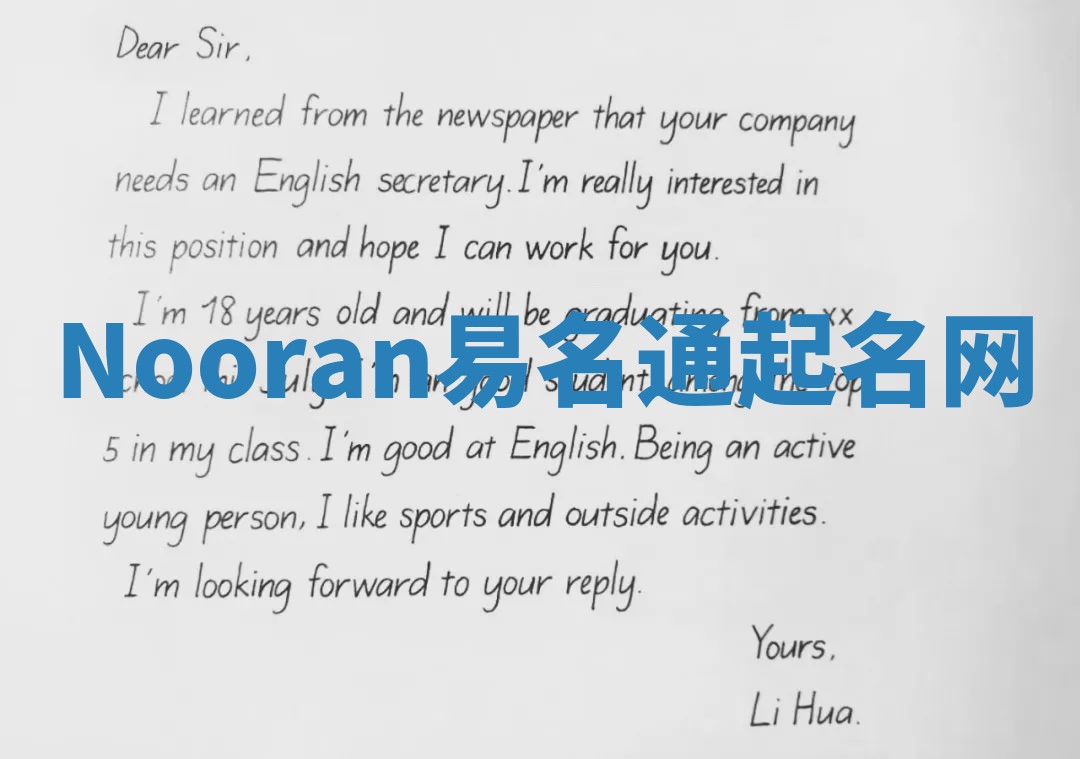 Dear Sir,
I learned from the newspaper that your company
needs an English secretary. I'm really interested in
this position and hope I can work for you.
I'm 18 years old and will be graduating from xx
Nooran易名通起名网
July I'm student among the top
5 in my class. I'm good at English. Being an active
young person, I like sports and outside activities.
I'm looking forward to your reply.
Yours,
Li Hua.